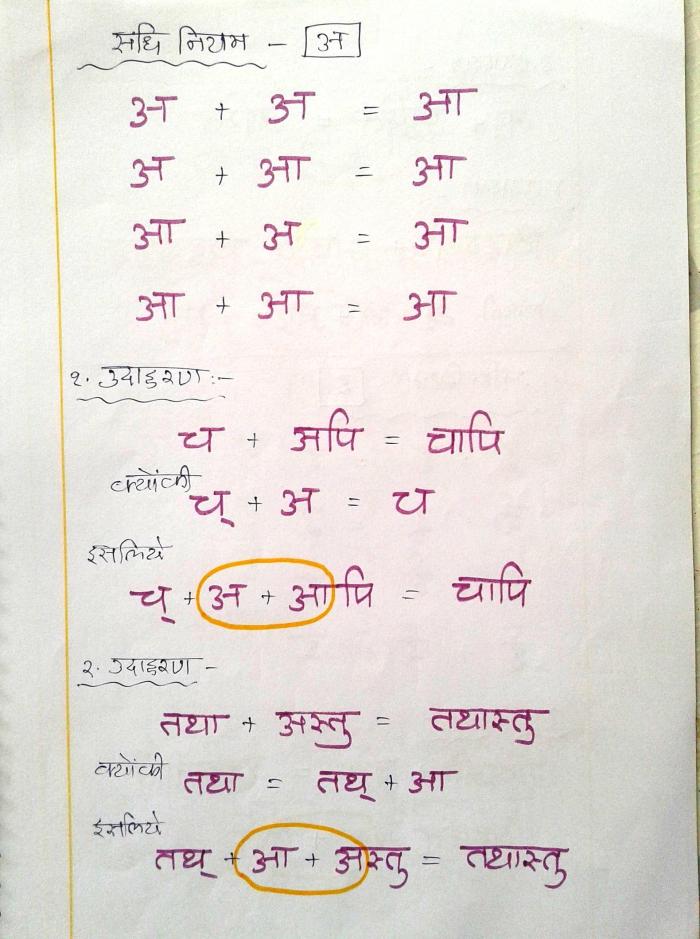 संधि नियम - अ
अ + अ = आ
अ + आ = आ
आ + अ = आ
आ + आ = आ
१. उदाहरण :-
च + अपि = चापि
क्योंकी च् + अ = च
इसलिये
च् + अ + आपि = चापि
२. उदाहरण -
तथा + अस्तु = तथास्तु
क्योंकी तथा = तथ् + आ
इसलिये
तथ् + आ + अस्तु = तथास्तु